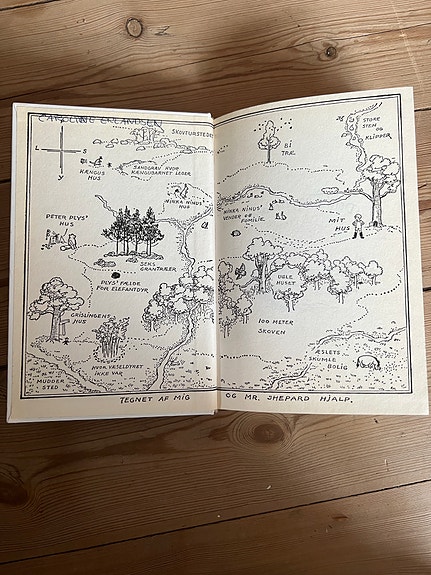 CAROLINE ERLANDSEN
SKOVTURSTEDET
L
S
Y
KÆNGUS
HUS
SANDGRAV HVOR
KÆNGUBARNET LEGER
NINKA NINUS'
HUS
PETER PLYS'
HUS
SEKS
GRANTRÆER
PLYS' FÆLDE
FOR ELEFANTDYR
GRISLINGENS
HUS
HVOR VÆSELDYRET
IKKE VAR
MUDDER
STED
TEGNET AF MIG
BI
TRÆ
STORE
STEN
OG
KLIPPER
NINKA NINUS'
VENNER OG
FAMILIE
MIT
HUS
UGLE
HUSET
100 METER
SKOVEN
ÆSLETS
SKUMLE
BOLIG
OG MR. SHEPARD HJALP.